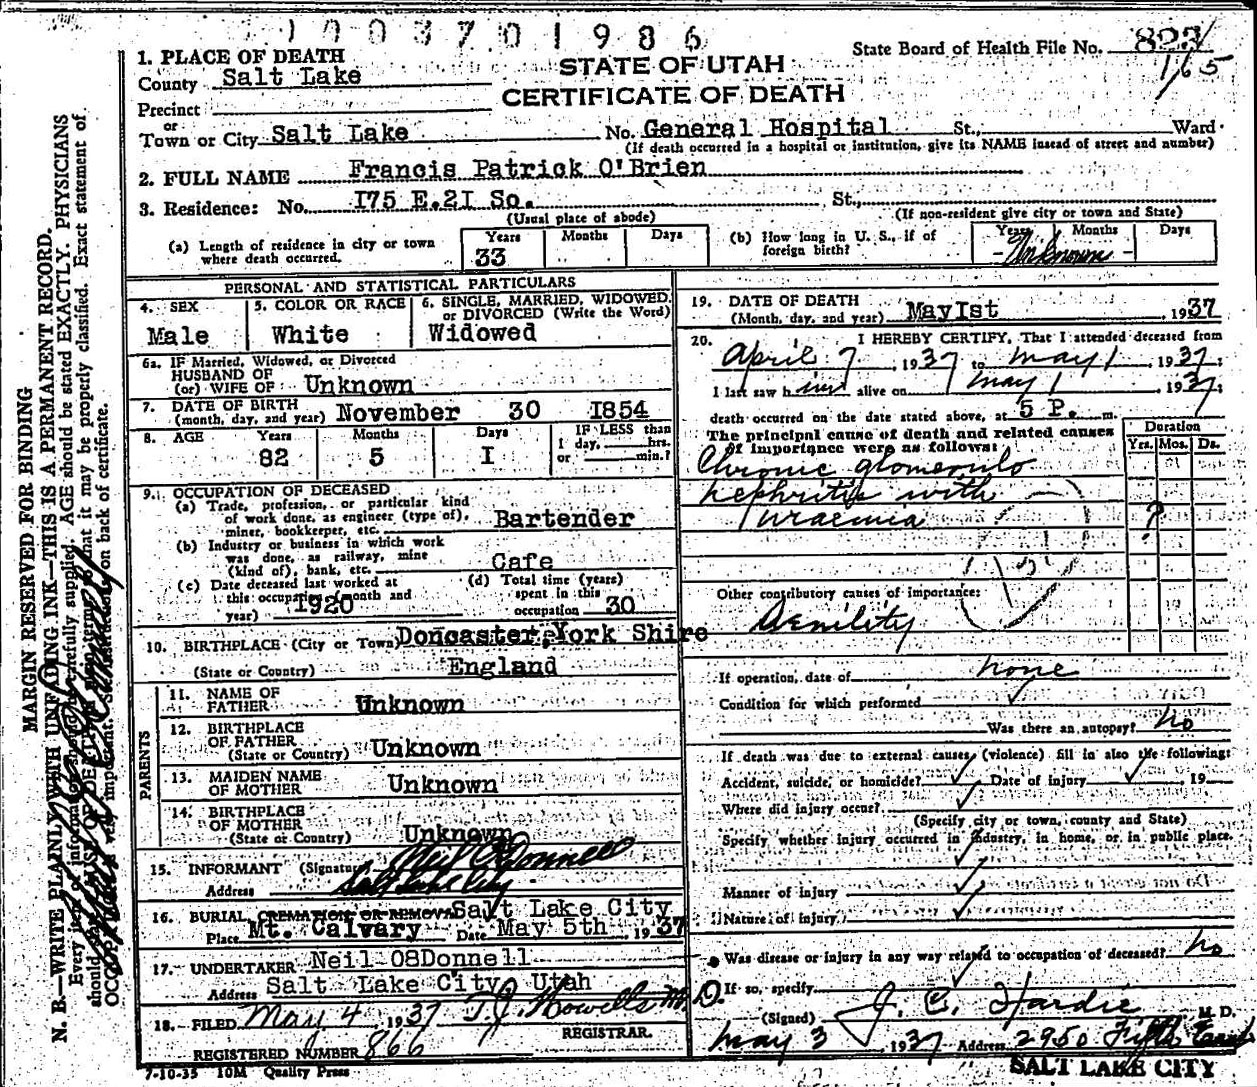 1 0 0 3 7 0 1 9 8 6
State Board of Health File No. 823/
165
STATE OF UTAH
CERTIFICATE OF DEATH
1. PLACE OF DEATH
County Salt Lake
Precinct
or
Town or City Salt Lake No. General Hospital St., Ward
(If death occurred in a hospital or institution, give its NAME instead of street and number)
2. FULL NAME Francis Patrick O'Brien
3. Residence: No. I75 E.2I So. St.,
(Usual place of abode) (If non-resident give city or town and State)
(a) Length of residence in city or town where death occurred. Years 33 Months Days
(b) How long in U. S., if of foreign birth? Years Months Days - Unknown -
PERSONAL AND STATISTICAL PARTICULARS
4. SEX Male
5. COLOR OR RACE White
6. SINGLE, MARRIED, WIDOWED, or DIVORCED (Write the Word) Widowed
6a. IF Married, Widowed, or Divorced
HUSBAND OF
(or) WIFE OF Unknown
7. DATE OF BIRTH
(month, day, and year) November 30 I854
8. AGE Years 82 Months 5 Days I
IF LESS than
1 day, hrs.
or min.?
9. OCCUPATION OF DECEASED
(a) Trade, profession, or particular kind
of work done, as engineer (type of),
miner, bookkeeper, etc. Bartender
(b) Industry or business in which work
was done, as railway, mine
(kind of), bank, etc. Cafe
(c) Date deceased last worked at
this occupation (month and
year) 1920
(d) Total time (years)
spent in this
occupation 30
10. BIRTHPLACE (City or Town) Doncaster, York Shire
(State or Country) England
PARENTS
11. NAME OF
FATHER Unknown
12. BIRTHPLACE
OF FATHER
(State or Country) Unknown
13. MAIDEN NAME
OF MOTHER Unknown
14. BIRTHPLACE
OF MOTHER
(State or Country) Unknown
15. INFORMANT (Signature) Neil O'Donnell
Address Salt Lake City
16. BURIAL, CREMATION OR REMOVAL Salt Lake City
Place Mt. Calvary Date May 5th, 1937
17. UNDERTAKER Neil O8Donnell
Address Salt Lake City, Utah
18. FILED May 4, 1937 T.J. Howells M.D.
REGISTRAR.
REGISTERED NUMBER 866
7-10-35 10M Quality Press
19. DATE OF DEATH
(Month, day, and year) MayIst 1937
20. I HEREBY CERTIFY, That I attended deceased from
April 7, 1937 to May 1, 1937;
I last saw h im alive on May 1, 1937;
death occurred on the date stated above, at 5 P. m.
The principal cause of death and related causes
of importance were as follows:
Duration
Yrs. Mos. Ds.
Chronic glomerulo
nephritis with
uraemia ?
Other contributory causes of importance:
Senility
If operation, date of none
Condition for which performed
Was there an autopsy? No
If death was due to external causes (violence) fill in also the following:
Accident, suicide, or homicide? Date of injury 19
Where did injury occur?
(Specify city or town, county and State)
Specify whether injury occurred in industry, in home, or in public place.
Manner of injury
Nature of injury
Was disease or injury in any way related to occupation of deceased? No
If so, specify
(Signed) J. C. Hardie M. D.
May 3, 1937 Address 2950 Fifth East
SALT LAKE CITY
MARGIN RESERVED FOR BINDING
N. B.—WRITE PLAINLY WITH UNFADING INK—THIS IS A PERMANENT RECORD.
Every item of information should be carefully supplied. AGE should be stated EXACTLY. PHYSICIANS
should state CAUSE OF DEATH in plain terms, so that it may be properly classified. Exact statement of
OCCUPATION is very important. See instructions on back of certificate.